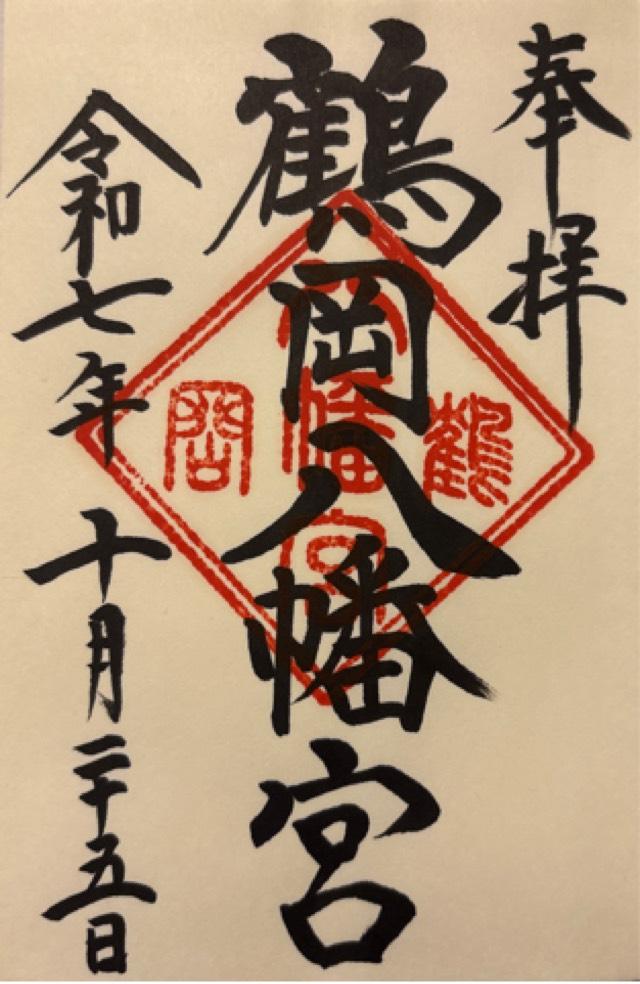 奉拝
鶴岡八幡宮
鶴 八幡宮 岡
令和七年 十月二十五日